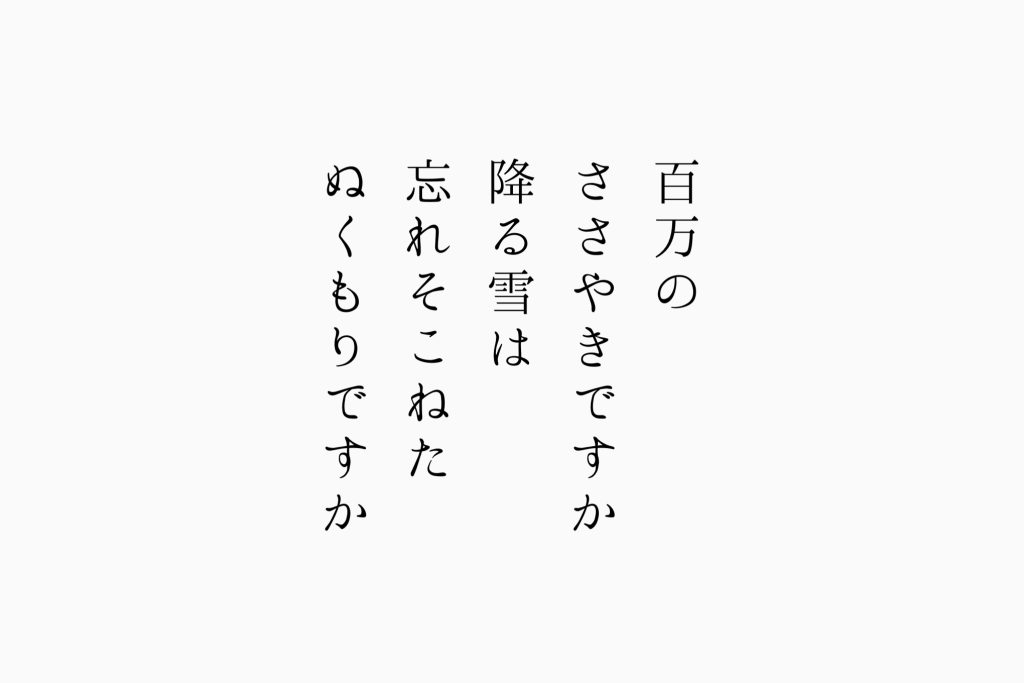 百万の
ささやきですか
降る雪は
忘れそこねた
ぬくもりですか